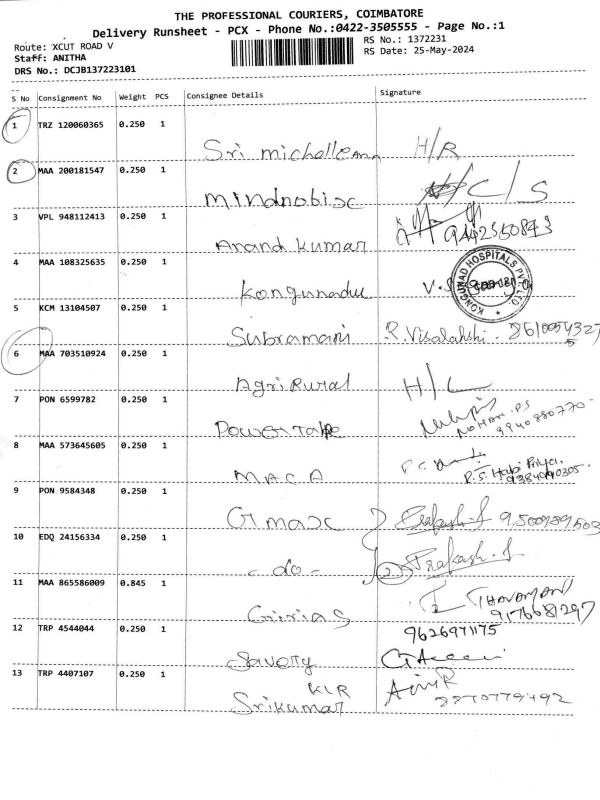 THE PROFESSIONAL COURIERS, COIMBATORE
Delivery Runsheet - PCX - Phone No.:0422-3505555 - Page No.:1
Route: XCUT ROAD V
RS No.: 1372231
Staff: ANITHA
RS Date: 25-May-2024
DRS No.: DCJB137223101
S No Consignment No Weight PCS Consignee Details Signature
1 TRZ 120060365 0.250 1
Sri H/R
2 MAA 200181547 0.250 1
C/S
3 VPL 948112413 0.250 1
Anand Kumar
4 MAA 108325635 0.250 1
Kongunadu
KONGUNAD HOSPITALS PVT. LTD.
5 KCM 13104507 0.250 1
Subramani R. Visalakshi.
6 MAA 703510924 0.250 1
Agri Rural H/L
7 PON 6599782 0.250 1
Power
9940880770
8 MAA 573645605 0.250 1
M.A.C.A
P.S. Hari Priya.
9384090305.
9 PON 9584348 0.250 1
Gmax Prakash.S
10 EDQ 24156334 0.250 1
- do - 2. Prakash.S
11 MAA 865586009 0.845 1
Girias THAVAMANI
9176681297
12 TRP 4544044 0.250 1
9626971175
13 TRP 4407107 0.250 1
KLR
Srikumar